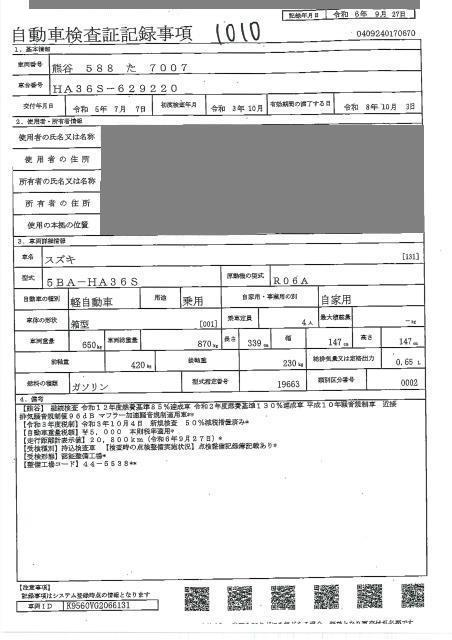 記録年月日 令和 6年 9月 27日
自動車検査証記録事項 1010 0409240170670
1. 基本情報
車両番号 熊谷 588 た 7007
車台番号 HA36S-629220
交付年月日 令和 5年 7月 7日 初度検査年月 令和 3年 10月 有効期間の満了する日 令和 8年 10月 3日
2. 使用者・所有者情報
使用者の氏名又は名称
使用者の住所
所有者の氏名又は名称
所有者の住所
使用の本拠の位置
3. 車両詳細情報
車名 スズキ [131]
型式 5BA-HA36S 原動機の型式 R06A
自動車の種別 軽自動車 用途 乗用 自家用・事業用の別 自家用
車体の形状 箱型 [001] 乗車定員 4人 最大積載量 -kg
車両重量 650kg 車両総重量 870kg 長さ 339cm 幅 147cm 高さ 147cm
前軸重 420kg 後軸重 230kg 総排気量又は定格出力 0.65 L
燃料の種類 ガソリン 型式指定番号 19663 類別区分番号 0002
4. 備考
【熊谷】 継続検査 令和12年度燃費基準85%達成車 令和2年度燃費基準130%達成車 平成10年騒音規制車 近接
排気騒音規制値96dB マフラー加速騒音規制適用車**
【令和3年度税制】令和3年10月4日 新規検査 50%減税措置済み*
【自動車重量税額】¥5,000 本則税率適用*
【走行距離計表示値】20,800km(令和6年9月27日)*
【受検種別】持込検査車 【検査時の点検整備実施状況】点検整備記録簿記載あり*
【受検形態】認証整備工場*
【整備工場コード】44-5538**
【注意事項】
記録事項はシステム登録時点の情報となります
車両ID K9560YG2066131